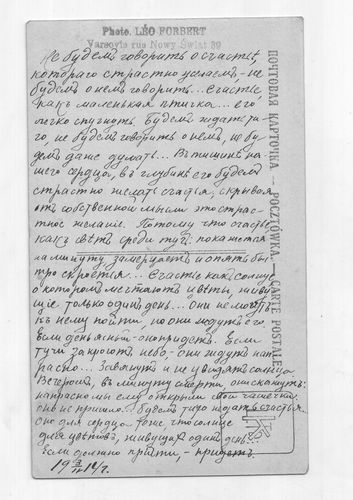 Photo. LÉO FORBERT
Varsovie rue Nowy Świat 39
ПОЧТОВАЯ КАРТОЧКА — POCZTÓWKA. — CARTE POSTALE
Не будемъ говорить о счастьѣ,
котораго страстно желаемъ,- не
будемъ о немъ говорить... Счастье,
какъ маленькая птичка... его
легко спугнуть. Будемъ ждать,
го, не будемъ говорить о немъ, не бу
демъ даже думать... Въ тишинѣ на-
шего сердца, въ глубинѣ его будемъ
страстно желать счастья, скрывая
отъ собственной мысли это страс-
тное желаніе. Потому что счастье
какъ свѣтъ среди тучъ: покажется
на минуту, замерцаетъ и опять быс-
тро скроется... Счастье какъ солнце
о которомъ мечтаютъ цвѣты, живу-
щіе только одинъ день... они не могутъ
къ нему пойти, но они ждутъ его.
Если день ясный - оно придетъ. Если
тучи закроютъ небо,- они ждутъ нап
расно... Завянутъ и не увидятъ солнца
Вечеромъ, въ минуту смерти они скажутъ:
напрасно мы ему открыли свои чашечки
оно не пришло... Будемъ тихо ждать счастья
оно для сердца тоже, что солнце
для цвѣтовъ, живущихъ одинъ день...
Если должно прійти,- придетъ.